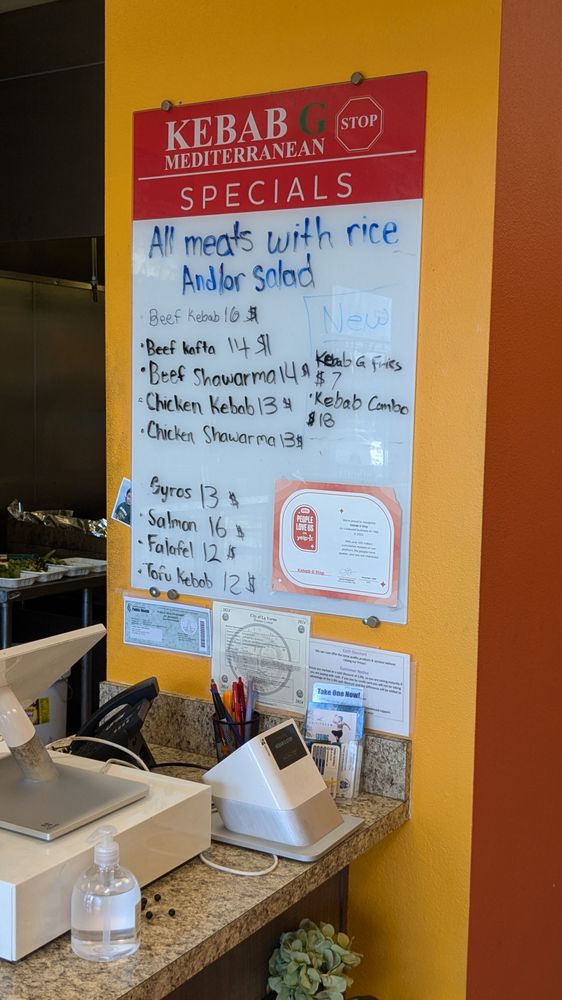 KEBAB G STOP
MEDITERRANEAN
SPECIALS
All meats with rice
And/or Salad
Beef Kebab 16 $
• Beef Kafta 14 $
• Beef Shawarma 14 $
• Chicken Kebab 13 $
• Chicken Shawarma 13 $
Gyros 13 $
• Salmon 16 $
• Falafel 12 $
• Tofu Kebab 12 $
New
Kebab G Fries
$ 7
• Kebab Combo
$ 18
PEOPLE
LOVE US
ON
yelp
Kebab G Stop
2024
2024
Cash Discount
Customer Notice
Take One Now!